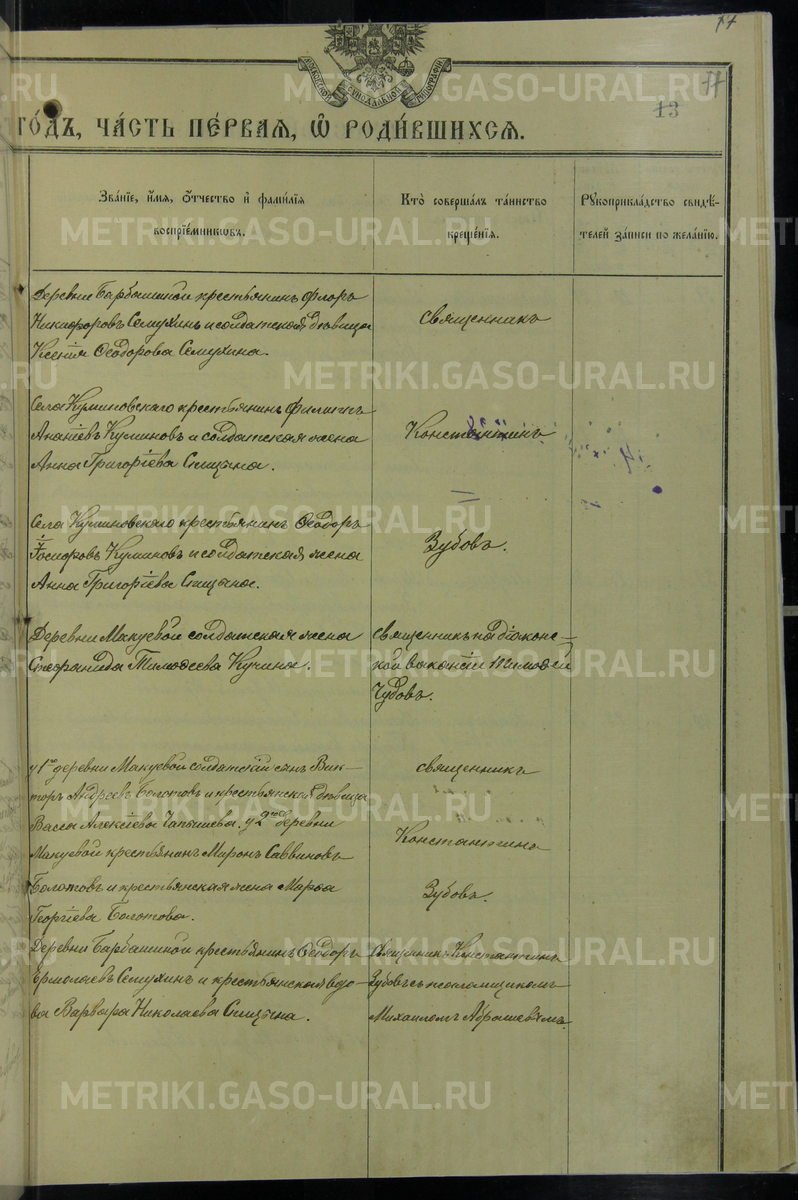 77
77
13
МОСКОВСКОЙ СѴНОДАЛЬНОЙ ТИПОГРАФІИ
ГО́ДЪ, ЧА́СТЬ ПЕ́РВАЯ, Ѡ҆ РОДИ́ВШИХСЯ.
Зва́ніе, и҆́мя, ѻ҆́тчество и҆ фами́лія
воспріе́мникѡвъ.
Кто̀ соверша́лъ та́инство
креще́нія.
Рꙋкоприкла́дство свидѣ́-
телей за́писи по жела́нію.
Деревни Барбашиной крестьянинъ Флоръ
Никифоровъ Семухинъ и солдатская дѣвица
Ксенія Ѳеодорова Семухина.
Священникъ
Села Куминовскаго крестьянинъ Филиппъ
Ананіевъ Куминовъ и солдатская жена
Анна Григоріева Спицына.
Константинъ
Села Куминовскаго крестьянинъ Ѳеодоръ
Куминовъ и солдатская жена
Анна Григоріева Спицына.
Зубовъ.
Деревни Макуевой солдатская жена
Стефанида Тимоѳеева Кучина.
священникъ на діакон-
ской ваканsіи Тимоѳей
Чудовъ.
у 1го деревни Макуевой солдатскій сынъ Вик-
торъ Андреевъ Болотовъ и крестьянская дѣвица
Васса Алексіева Чапышева. у 2го деревни
Макуевой крестьянинъ Миронъ Саввиновъ
Болотовъ и крестьянская жена Марѳа
Георгіева Болотова.
священникъ
Константинъ
Зубовъ.
Деревни Барбашиной крестьянинъ Ѳеодоръ
Ермолаевъ Семухинъ и крестьянская вдо-
ва Варвара Николаева Спицына.
Священникъ Константинъ
Зубовъ съ псаломщикомъ
Михаиломъ Абрашевымъ
METRIKI.GASO-URAL.RU